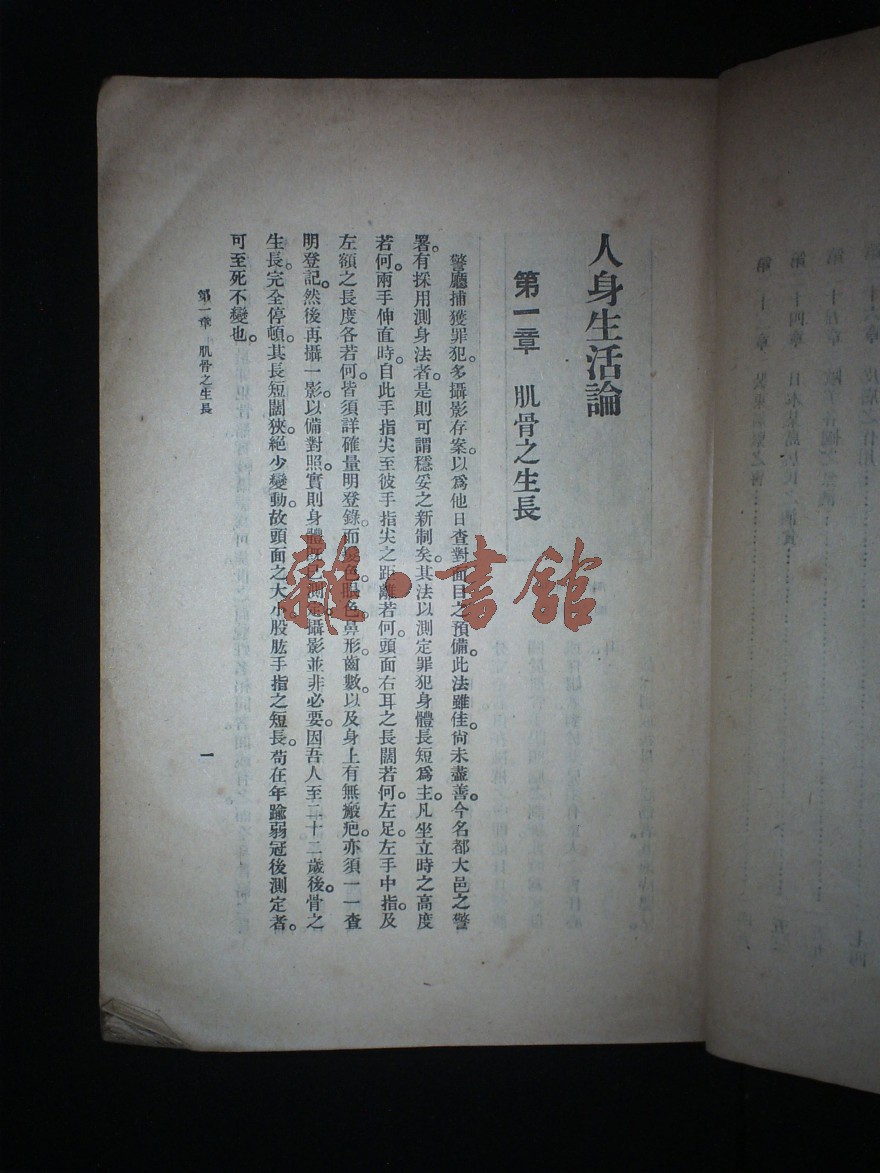 人身生活論
第一章　肌骨之生長
警廳捕獲罪犯。多攝影存案。以爲他日查對面目之預備。此法雖佳。尙未盡善。今名都大邑之警
署。有採用測身法者。是則可謂穩妥之新制矣。其法以測定罪犯身體長短爲主。凡坐立時之高度
若何。兩手伸直時。自此手指尖至彼手指尖之距離若何。頭面右耳之長闊若何。左足。左手中指。及
左額之長度各若何。皆須詳確量明登錄。而髮色。眼色。鼻形。齒數。以及身上有無瘢疤。亦須一一查
明登記。然後再攝一影。以備對照。實則身體既已測定。攝影並非必要。因吾人至二十二歲後。骨之
生長。完全停頓。其長短闊狹。絕少變動。故頭面之大小。股肱手指之短長。苟在年踰弱冠後測定者。
可至死不變也。
第一章　肌骨之生長
一
雜·書館